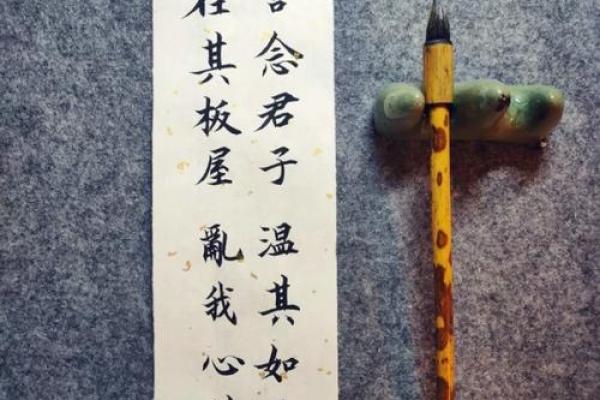 言念君子 温其如
在其板屋 亂我心